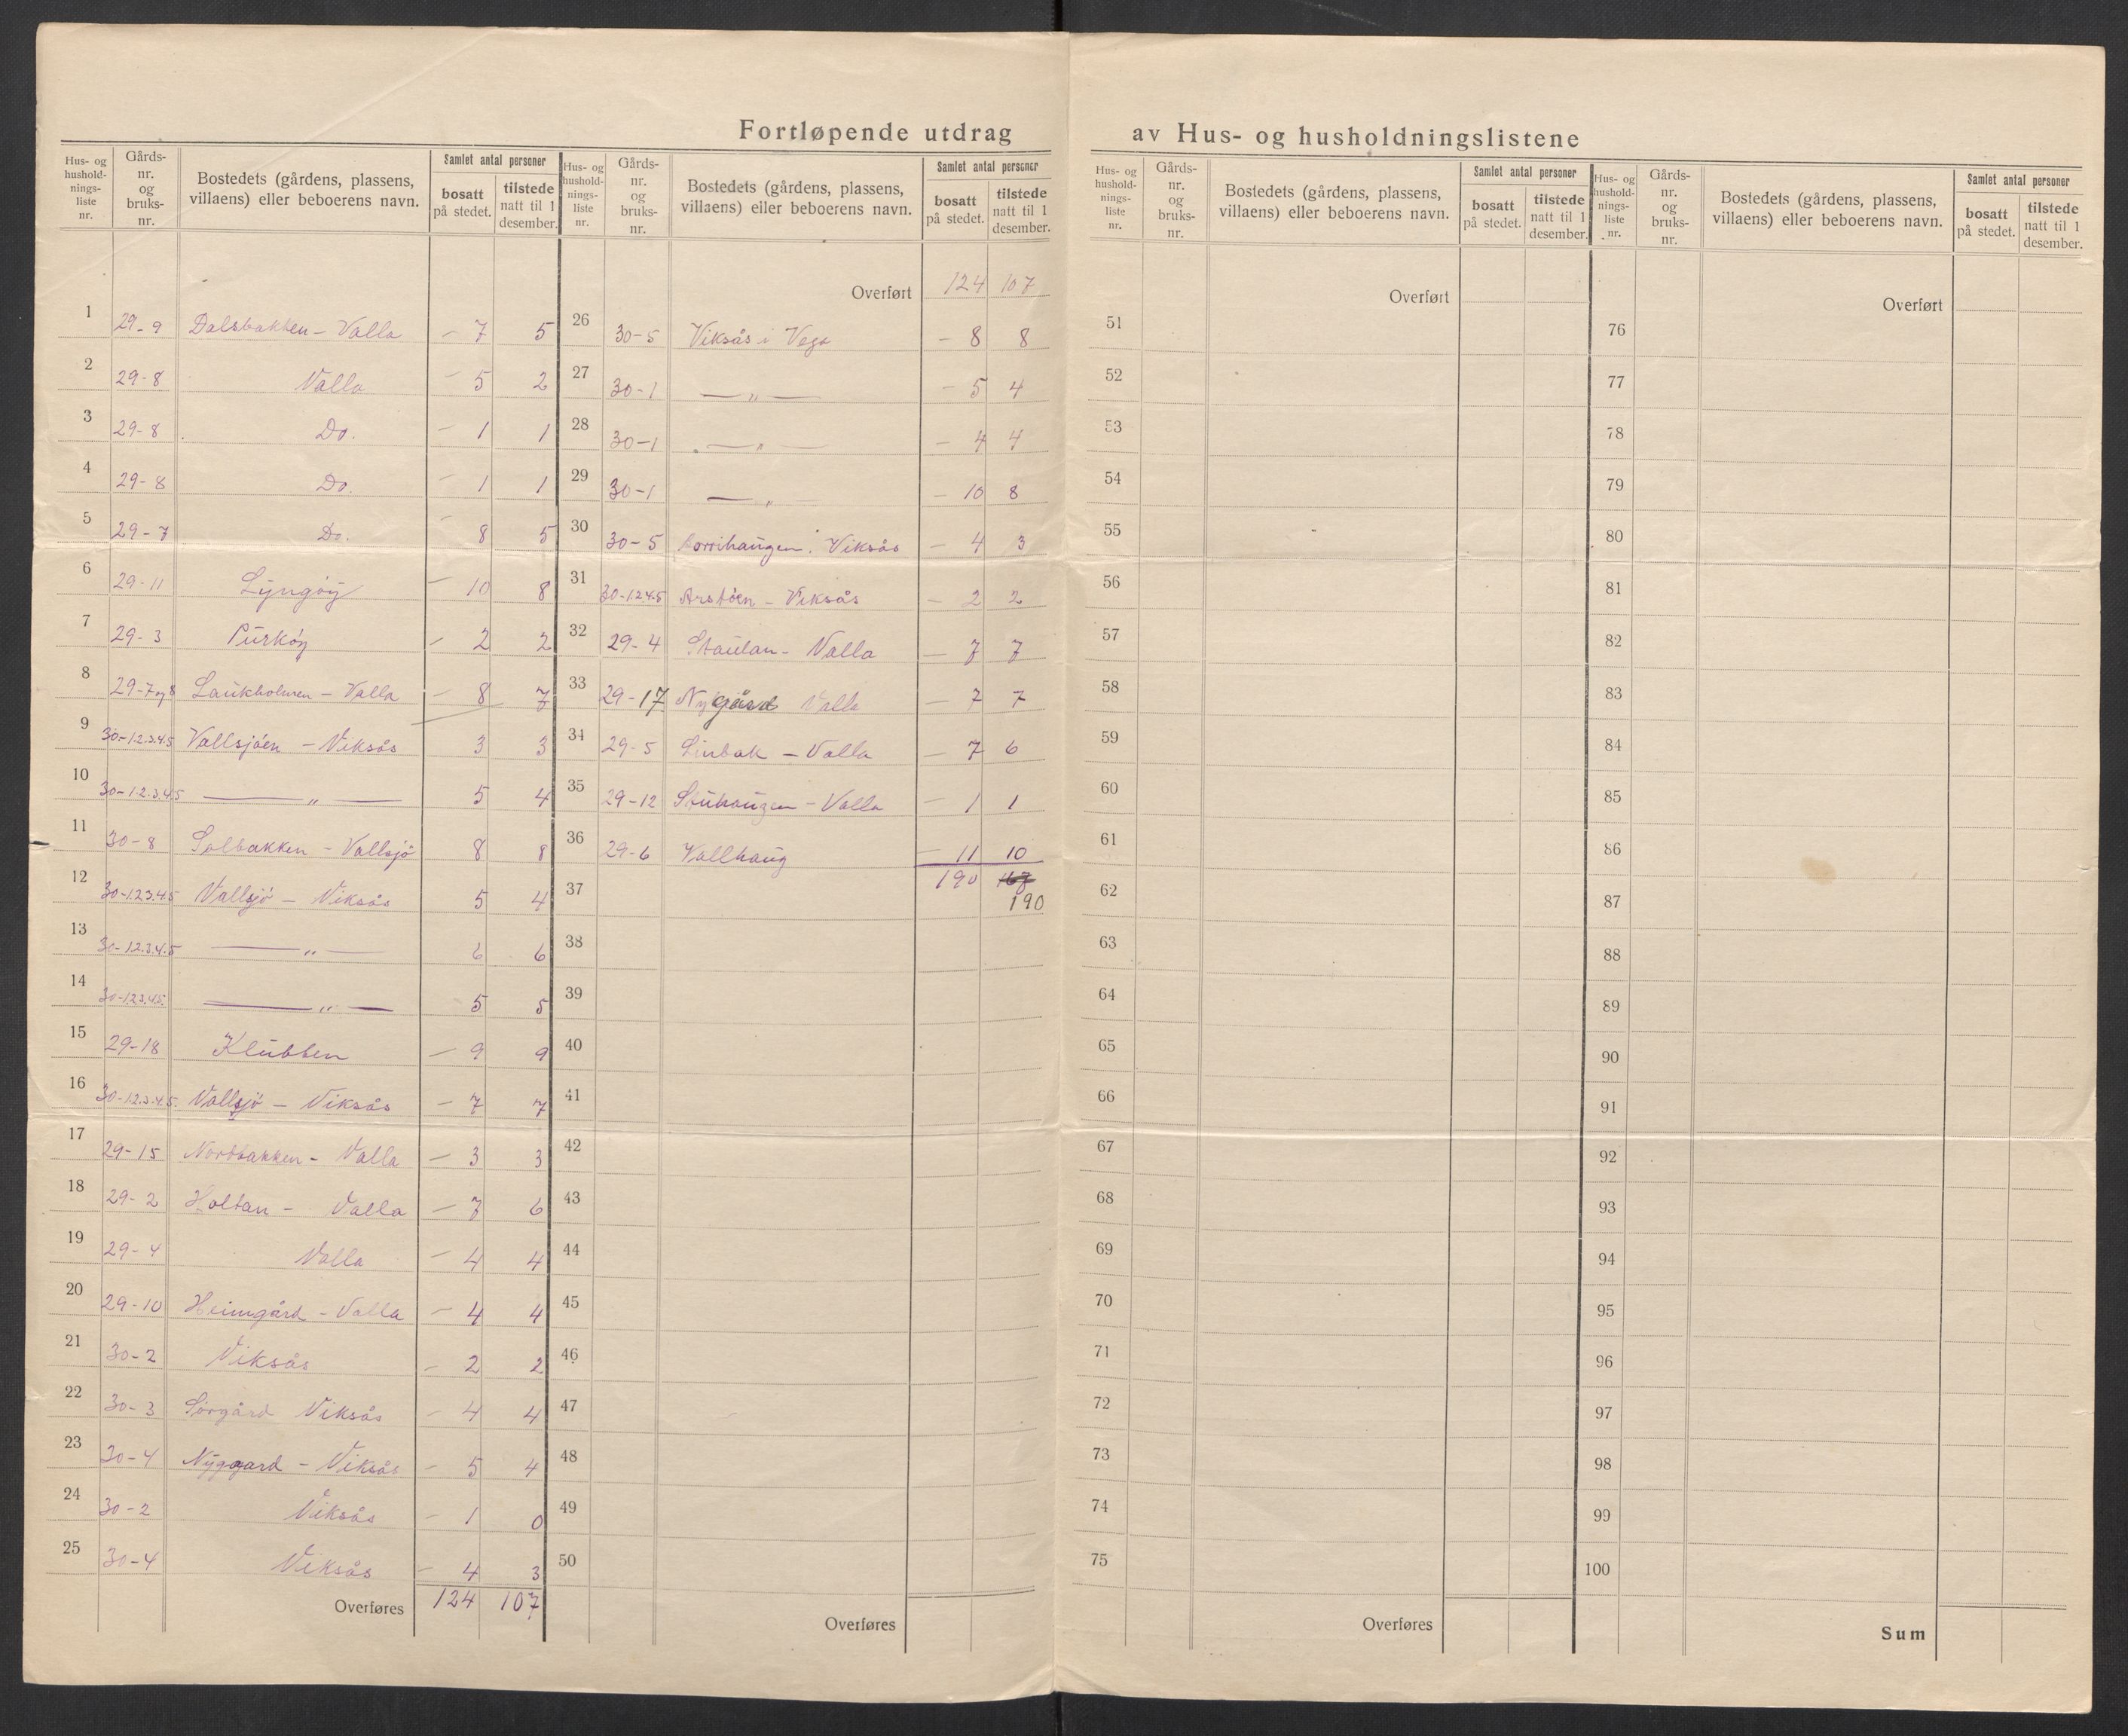 Fortløpende utdrag av Hus- og husholdningslistene
Hus- og husholdnings-liste nr. | Gårds-nr. og bruks-nr. | Bostedets (gårdens, plassens, villaens) eller beboerens navn. | Samlet antal personer | bosatt på stedet. | tilstede natt til 1 desember.
1 29-9 Dalsbakken - Valla - 7 5
2 29-8 Valla - 5 2
3 29-8 Do. - 1 1
4 29-8 Do. - 1 1
5 29-7 Do. - 8 5
6 29-11 Lyngöy - 10 8
7 29-3 Purköy - 2 2
8 29-7og8 Laukholmen - Valla - 8 7
9 30-1.2.3.4.5 Vallsjöen - Viksås 3 3
10 30-1.2.3.4.5 — „ — 5 4
11 30-8 Solbakken - Vallsjö 8 8
12 30-1.2.3.4.5 Vallsjö - Viksås 5 4
13 30-1.2.3.4.5 — „ — 6 6
14 30-1.2.3.4.5. — „ — 5 5
15 29-18 Klubben - 9 9
16 30-1.2.3.4.5. Vallsjö - Viksås - 7 7
17 29-15 Nordbakken - Valla - 3 3
18 29-2 Holtan - Valla - 7 6
19 29-4 Valla - 4 4
20 29-10 Heimgård - Valla - 4 4
21 30-2 Viksås - 2 2
22 30-3 Sörgård Viksås - 4 4
23 30-4 Nyggard - Viksås - 5 4
24 30-2 Viksås - 1 0
25 30-4 Viksås - 4 3
Overføres 124 107
Hus- og husholdnings-liste nr. | Gårds-nr. og bruks-nr. | Bostedets (gårdens, plassens, villaens) eller beboerens navn. | Samlet antal personer | bosatt på stedet. | tilstede natt til 1 desember.
Overført 124 107
26 30-5 Viksås i Vega - 8 8
27 30-1 — „ — - 5 4
28 30-1 — „ — - 4 4
29 30-1 — „ — - 10 8
30 30-5 Viksås - 4 3
31 30-1.2.4.5 - Viksås - 2 2
32 29-4 Staulan - Valla - 7 7
33 29-17 Nygård Valla - 7 7
34 29-5 Linbak - Valla - 7 6
35 29-12 Stuhaugen - Valla - 1 1
36 29-6 Vallhaug - 11 10
37 190 167 190
38
39
40
41
42
43
44
45
46
47
48
49
50
Overføres
Hus- og husholdnings-liste nr. | Gårds-nr. og bruks-nr. | Bostedets (gårdens, plassens, villaens) eller beboerens navn. | Samlet antal personer | bosatt på stedet. | tilstede natt til 1 desember.
Overført
51
52
53
54
55
56
57
58
59
60
61
62
63
64
65
66
67
68
69
70
71
72
73
74
75
Overføres
Hus- og husholdnings-liste nr. | Gårds-nr. og bruks-nr. | Bostedets (gårdens, plassens, villaens) eller beboerens navn. | Samlet antal personer | bosatt på stedet. | tilstede natt til 1 desember.
Overført
76
77
78
79
80
81
82
83
84
85
86
87
88
89
90
91
92
93
94
95
96
97
98
99
100
Sum